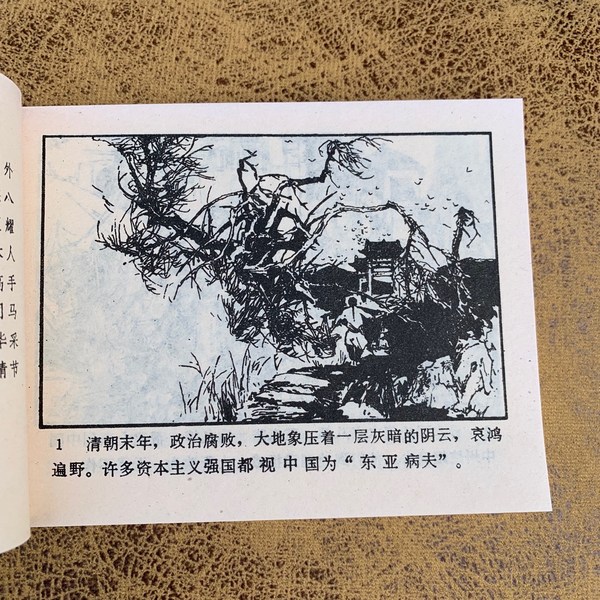 外
八
耀
人
手
马
采
节
1 清朝末年，政治腐败，大地象压着一层灰暗的阴云，哀鸿
遍野。许多资本主义强国都视中国为“东亚病夫”。